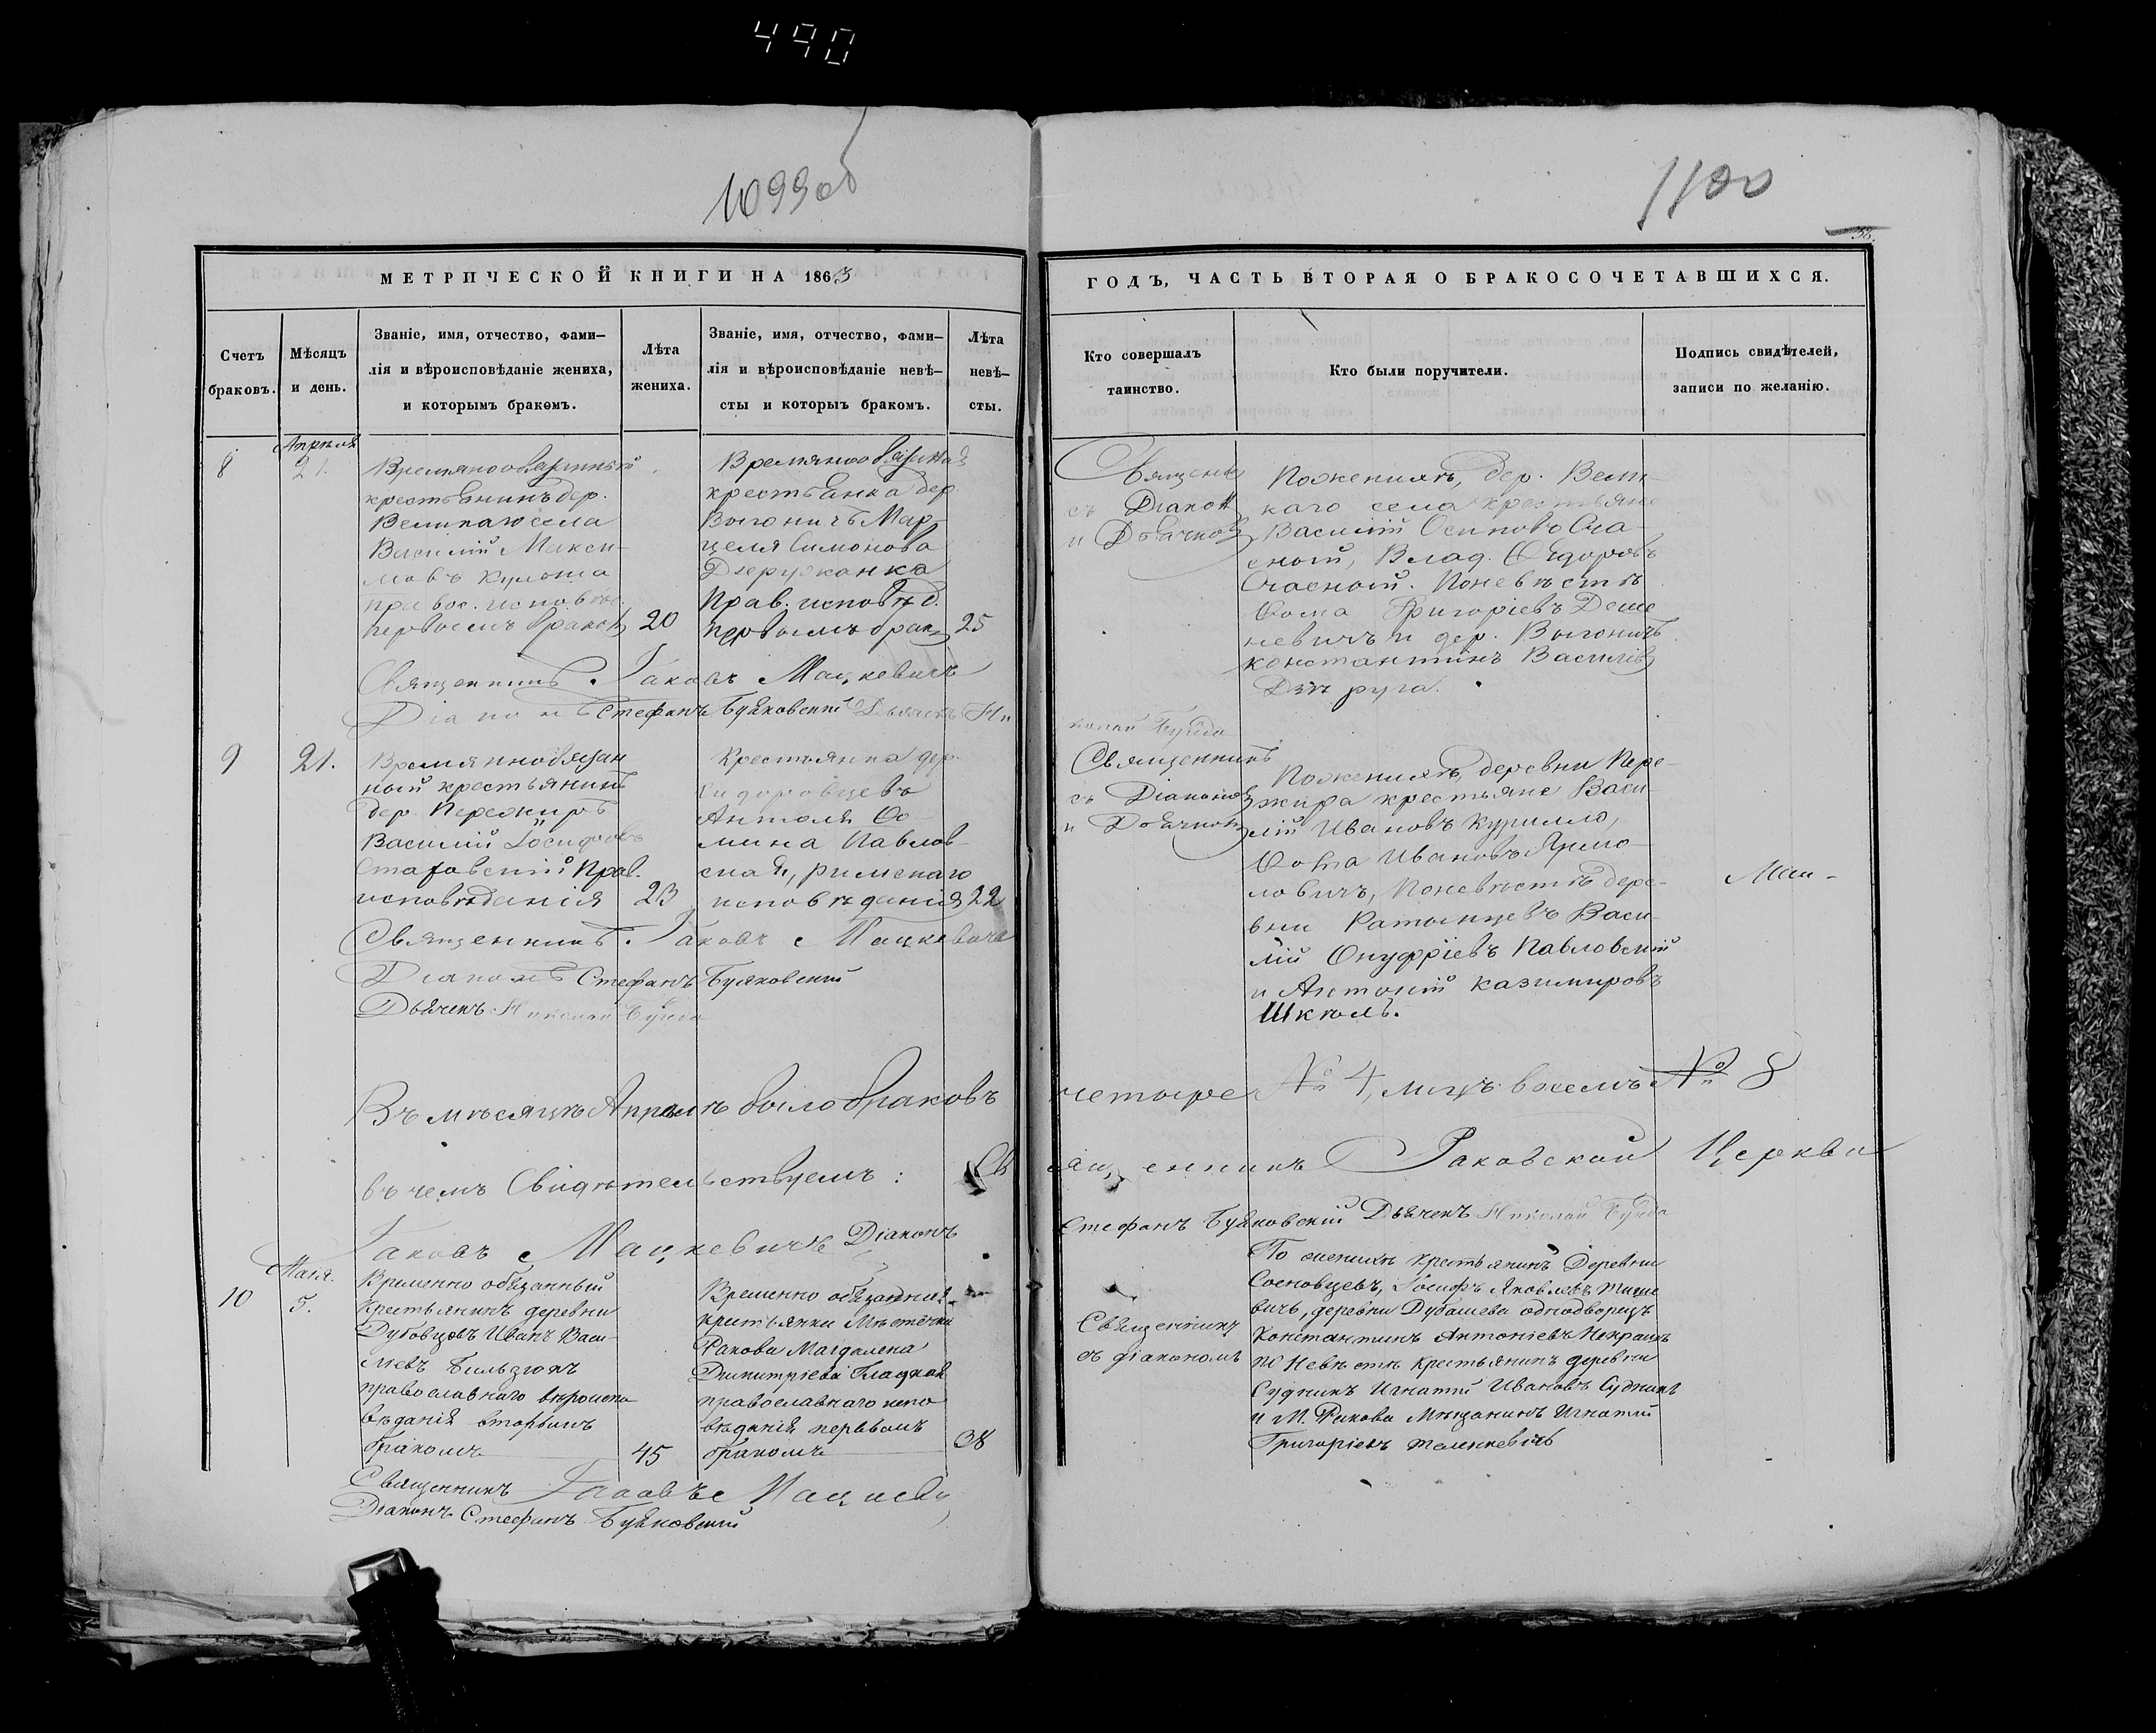 490
1099об
1100
МЕТРИЧЕСКОЙ КНИГИ НА 1863
ГОДЪ, ЧАСТЬ ВТОРАЯ О БРАКОСОЧЕТАВШИХСЯ.
Счетъ браковъ.
Мѣсяцъ и день.
Званіе, имя, отчество, фами-
лія и вѣроисповѣданіе жениха,
и которымъ бракомъ.
Лѣта жениха.
Званіе, имя, отчество, фами-
лія и вѣроисповѣданіе невѣ-
сты и которыъ бракомъ.
Лѣта невѣ-
сты.
Кто совершалъ
таинство.
Кто были поручители.
Подпись свидѣтелей,
записи по желанію.
8
Апрѣля
21.
Времянообязанный
крестьянинъ дер.
Великаго села
Василій Макси-
мовъ Кулеша
правос. исповѣд.
первымъ бракомъ
20
Времянообязаная
крестьянка дер.
Выгоничъ Мар-
целя Симонова
Прав. исповѣд.
первымъ брак.
25
Священ.
съ Діакон.
и Дьячком
По женихѣ, дер. Вели-
каго села крестьяне
Василій Осиповъ Ста-
сной, Влад. Ѳедоровъ
Стасной. По невѣстѣ
Ѳома Григоріевъ Деше
невичъ и дер. Выгоничъ
Константинъ Василіев
Дзеруга.
Священникъ Іаковъ Мацкевичъ
Діаконъ Стефанъ Буяковскій Дьячекъ Ни
колай
9
21.
Времяннообязан
ный крестьянинъ
дер. Пережиръ
Василій Іосифовъ
Прав.
исповѣданія
23
Крестьянка дер.
Сидоровщевъ
Антоля Ѳо-
мина Павлов-
ская, римскаго
исповѣданія
22
Священникъ
съ Діакономъ
и Дьячком
По женихѣ, деревни Пере-
жира крестьяне Васи-
лій Ивановъ Курилло,
Ѳома Ивановъ Ярмо-
ловичъ, По невѣстѣ дере-
вни Ратынцевъ Васи-
лій Онуфріевъ Павловскій
и Антоній Казимировъ
Школь.
Священникъ Іаковъ Мацкевичъ
Діаконъ Стефанъ Буяковскій
Дьячекъ Николай
Въ мѣсяцѣ Апрѣлѣ было браковъ
четыре № 4, лицъ восемь № 8
въ чемъ Свидѣтельствуемъ: Св
ященникъ Раковской Церкви
Іаковъ Мацкевичъ Діаконъ
Стефанъ Буяковскій Дьячекъ Николай
Мая.
10
5.
Временно обязанный
крестьянинъ деревни
Дубовцовъ Иванъ Васи-
левъ
православнаго вѣроиспо
вѣданія вторымъ
бракомъ
45
Временно обязанная
крестьянка Мѣстечка
Ракова Магдалена
Димитріева
православнаго испо
вѣданія первымъ
бракомъ
38
Священникъ
съ діакономъ
По женихѣ крестьянинъ Деревни
Сосновцевъ, Іосифъ Яковлевъ
вичъ, деревни Дубашева однодворецъ
Константинъ Антоніевъ
по Невѣстѣ крестьянинъ деревни
Судникъ Игнатій Ивановъ Судникъ
и М. Ракова Мѣщанинъ Игнатій
Григоріевъ
Священникъ Іаковъ
Діаконъ Стефанъ Буяковскій